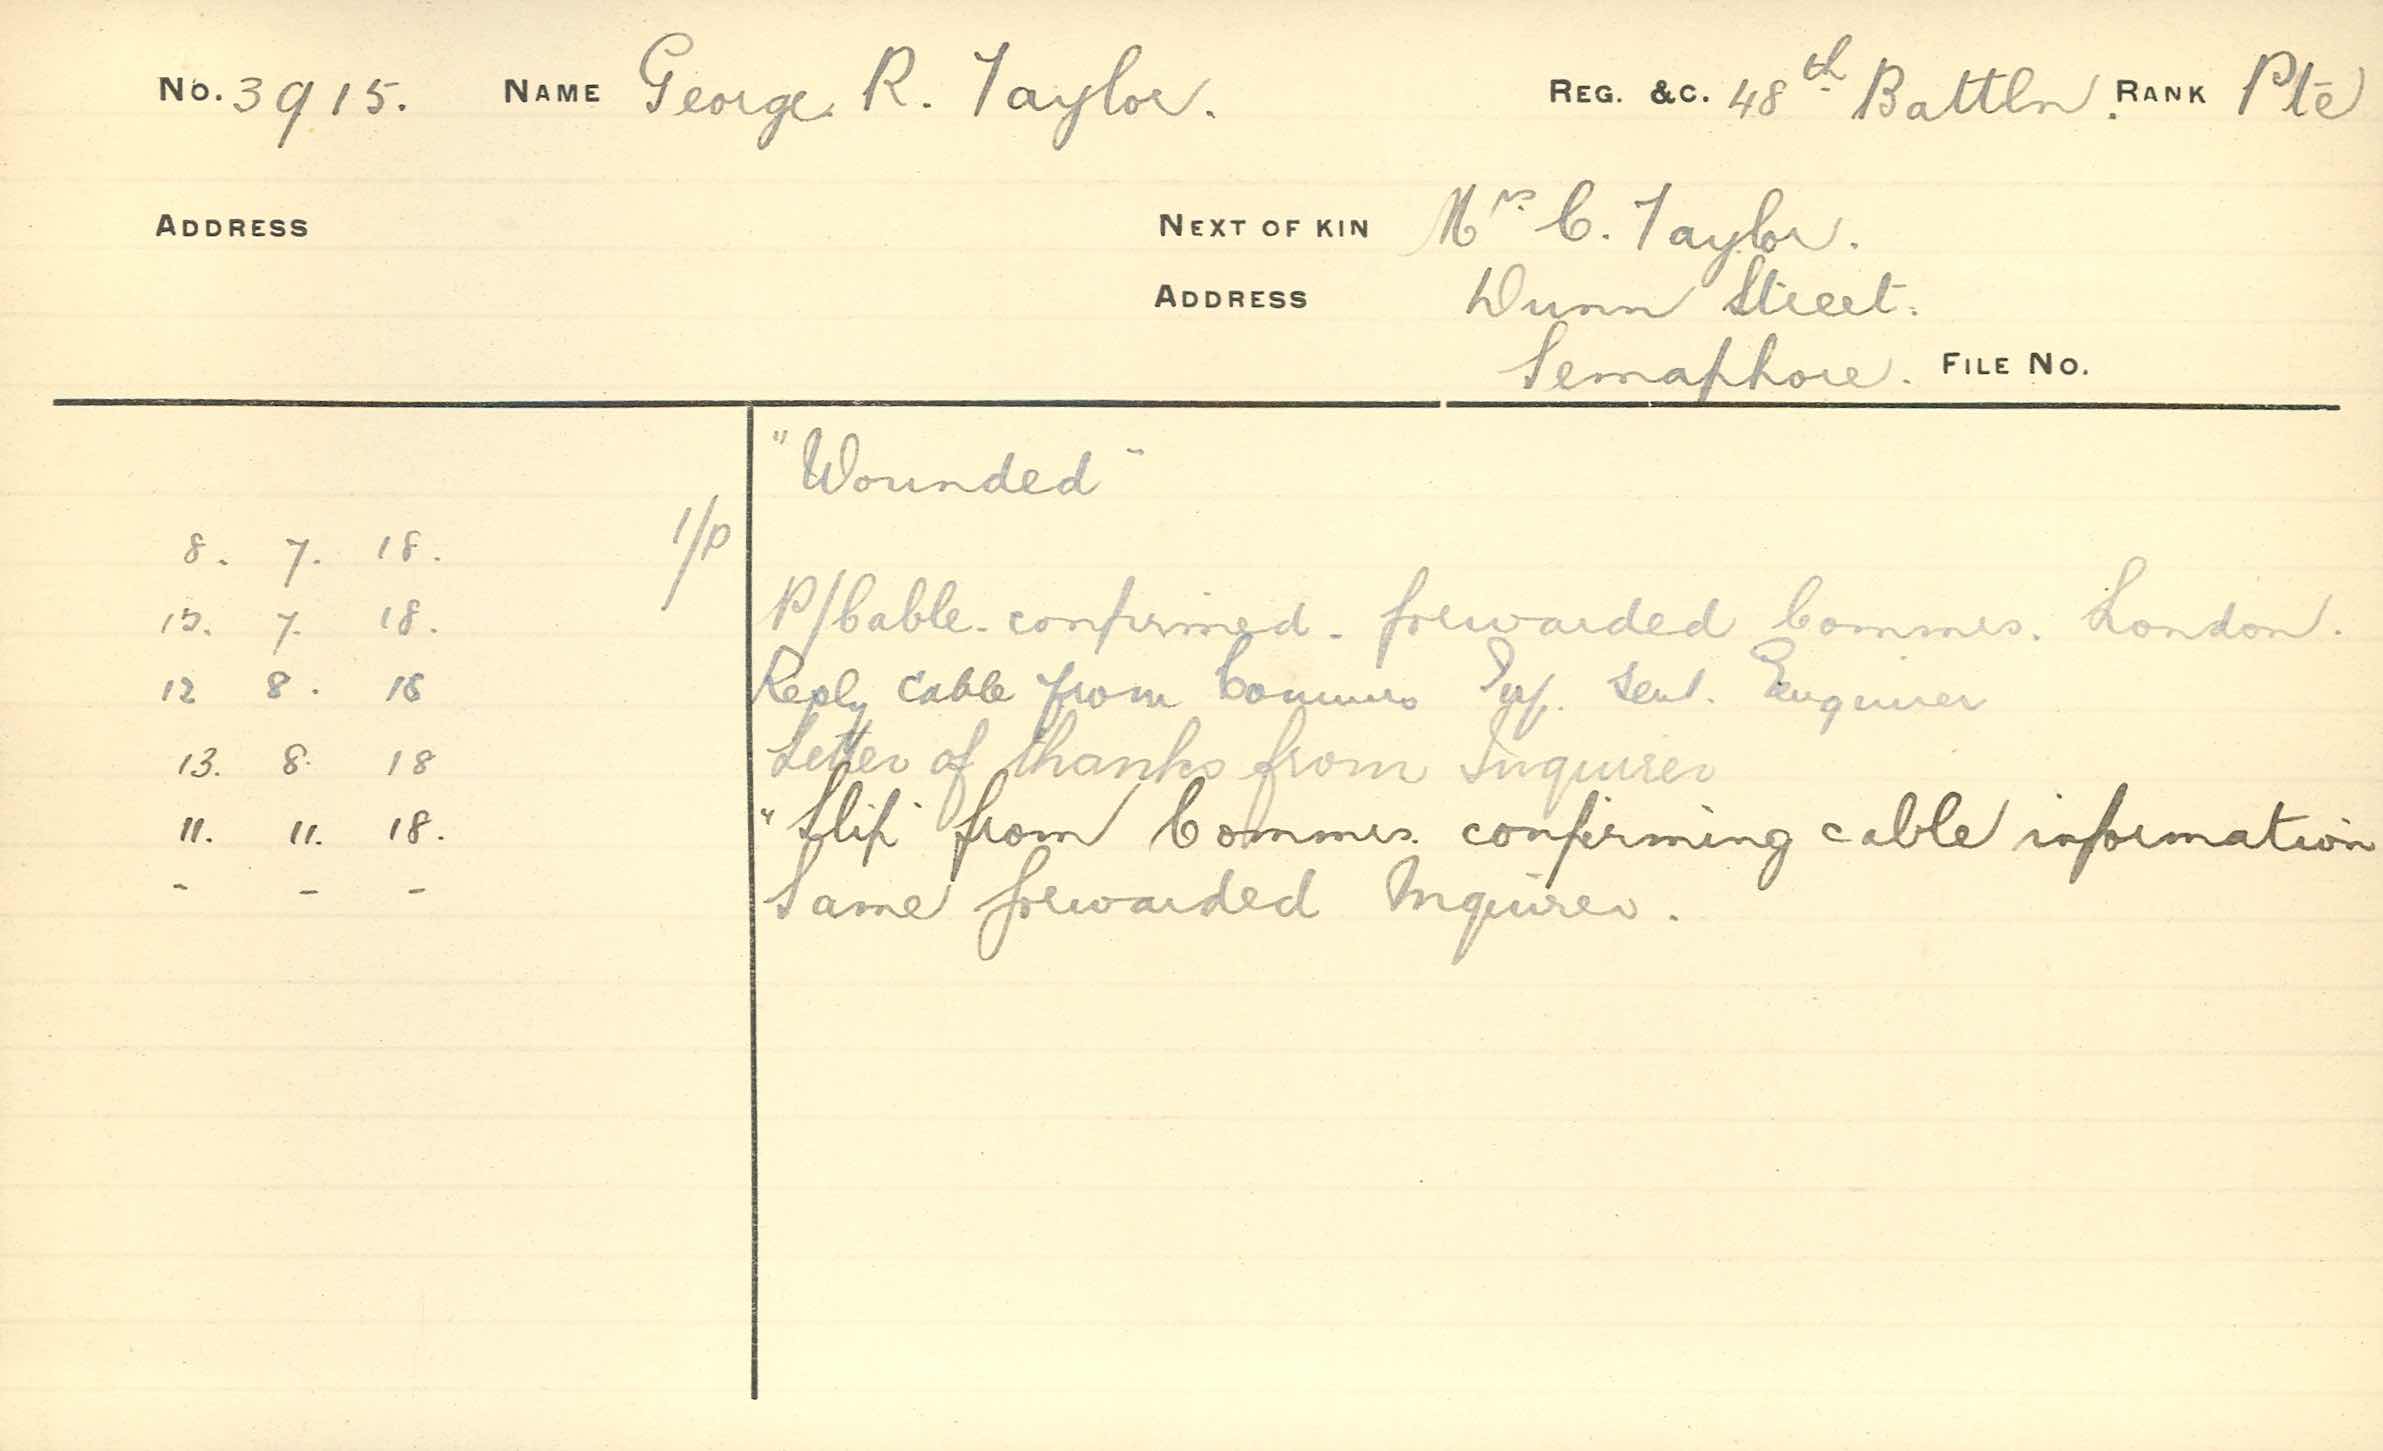 No. 3915. NAME George. R. Taylor. REG. &C. 48th Battln. RANK Pte
ADDRESS NEXT OF KIN Mrs. C. Taylor.
ADDRESS Dunn Street.
Semaphore. FILE NO.
"Wounded"
8. 7. 18. 1/P
7. 18. P/Cable. confirmed. forwarded Commrs. London.
12 8. 18 Reply Cable from Commrs Inf. sent. Enquirer
13. 8. 18 Letter of thanks from Inquirer
11. 11. 18. "Slip" from Commrs. confirming cable information
- - - Same forwarded Inquirer.